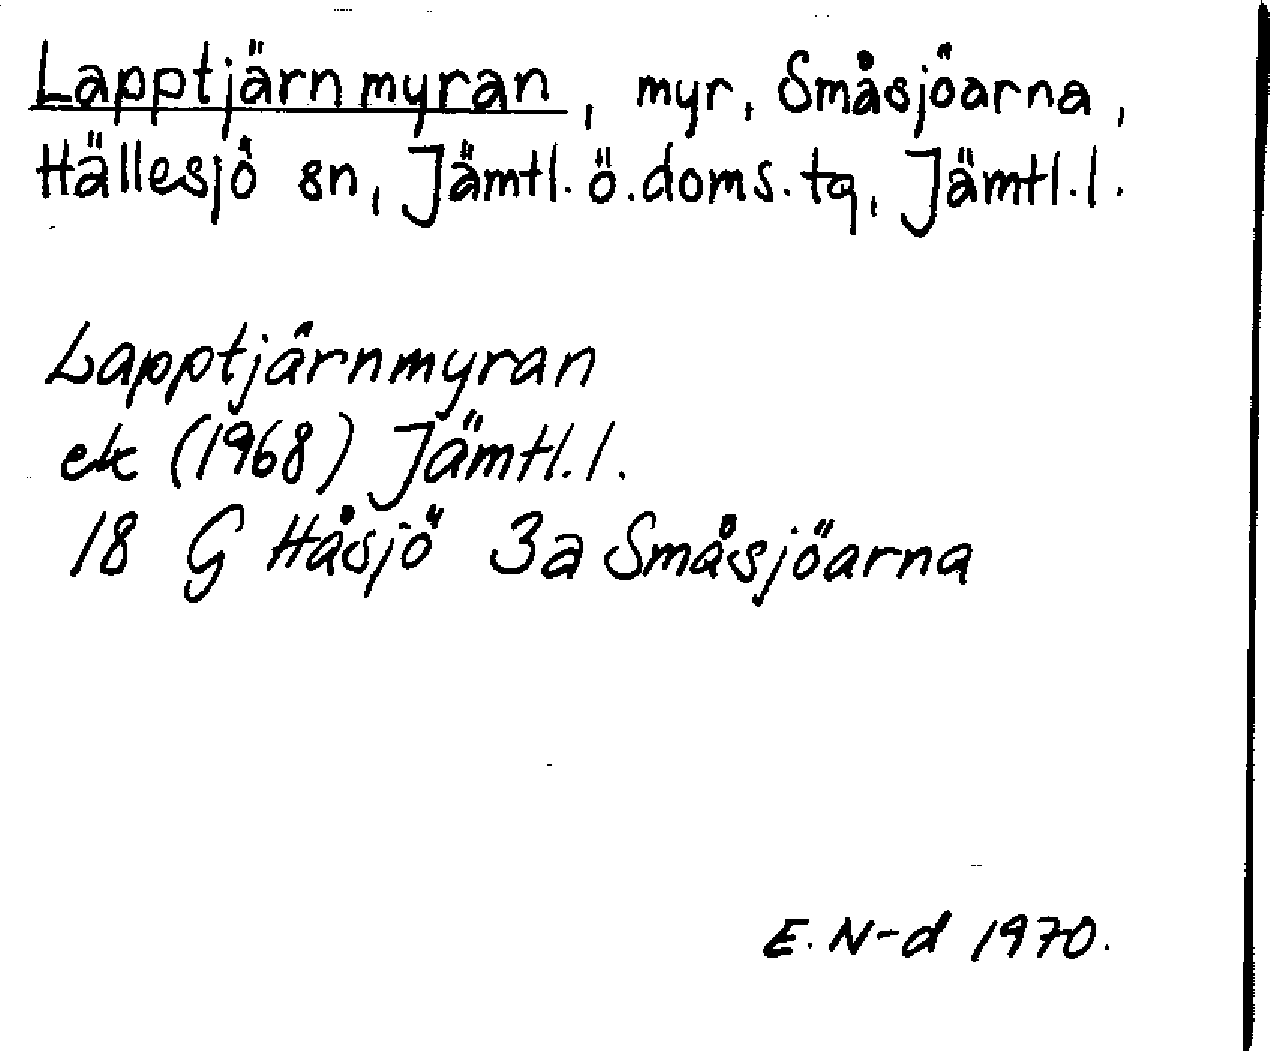 Lapptjärnmyran, myr, Småsjöarna,
Hällesjö sn, Jämtl. ö. doms. tg, Jämtl. l.
Lapptjärnmyran
ek (1968) Jämtl. l.
18 G Håsjö 3a Småsjöarna
E. N-d 1970.